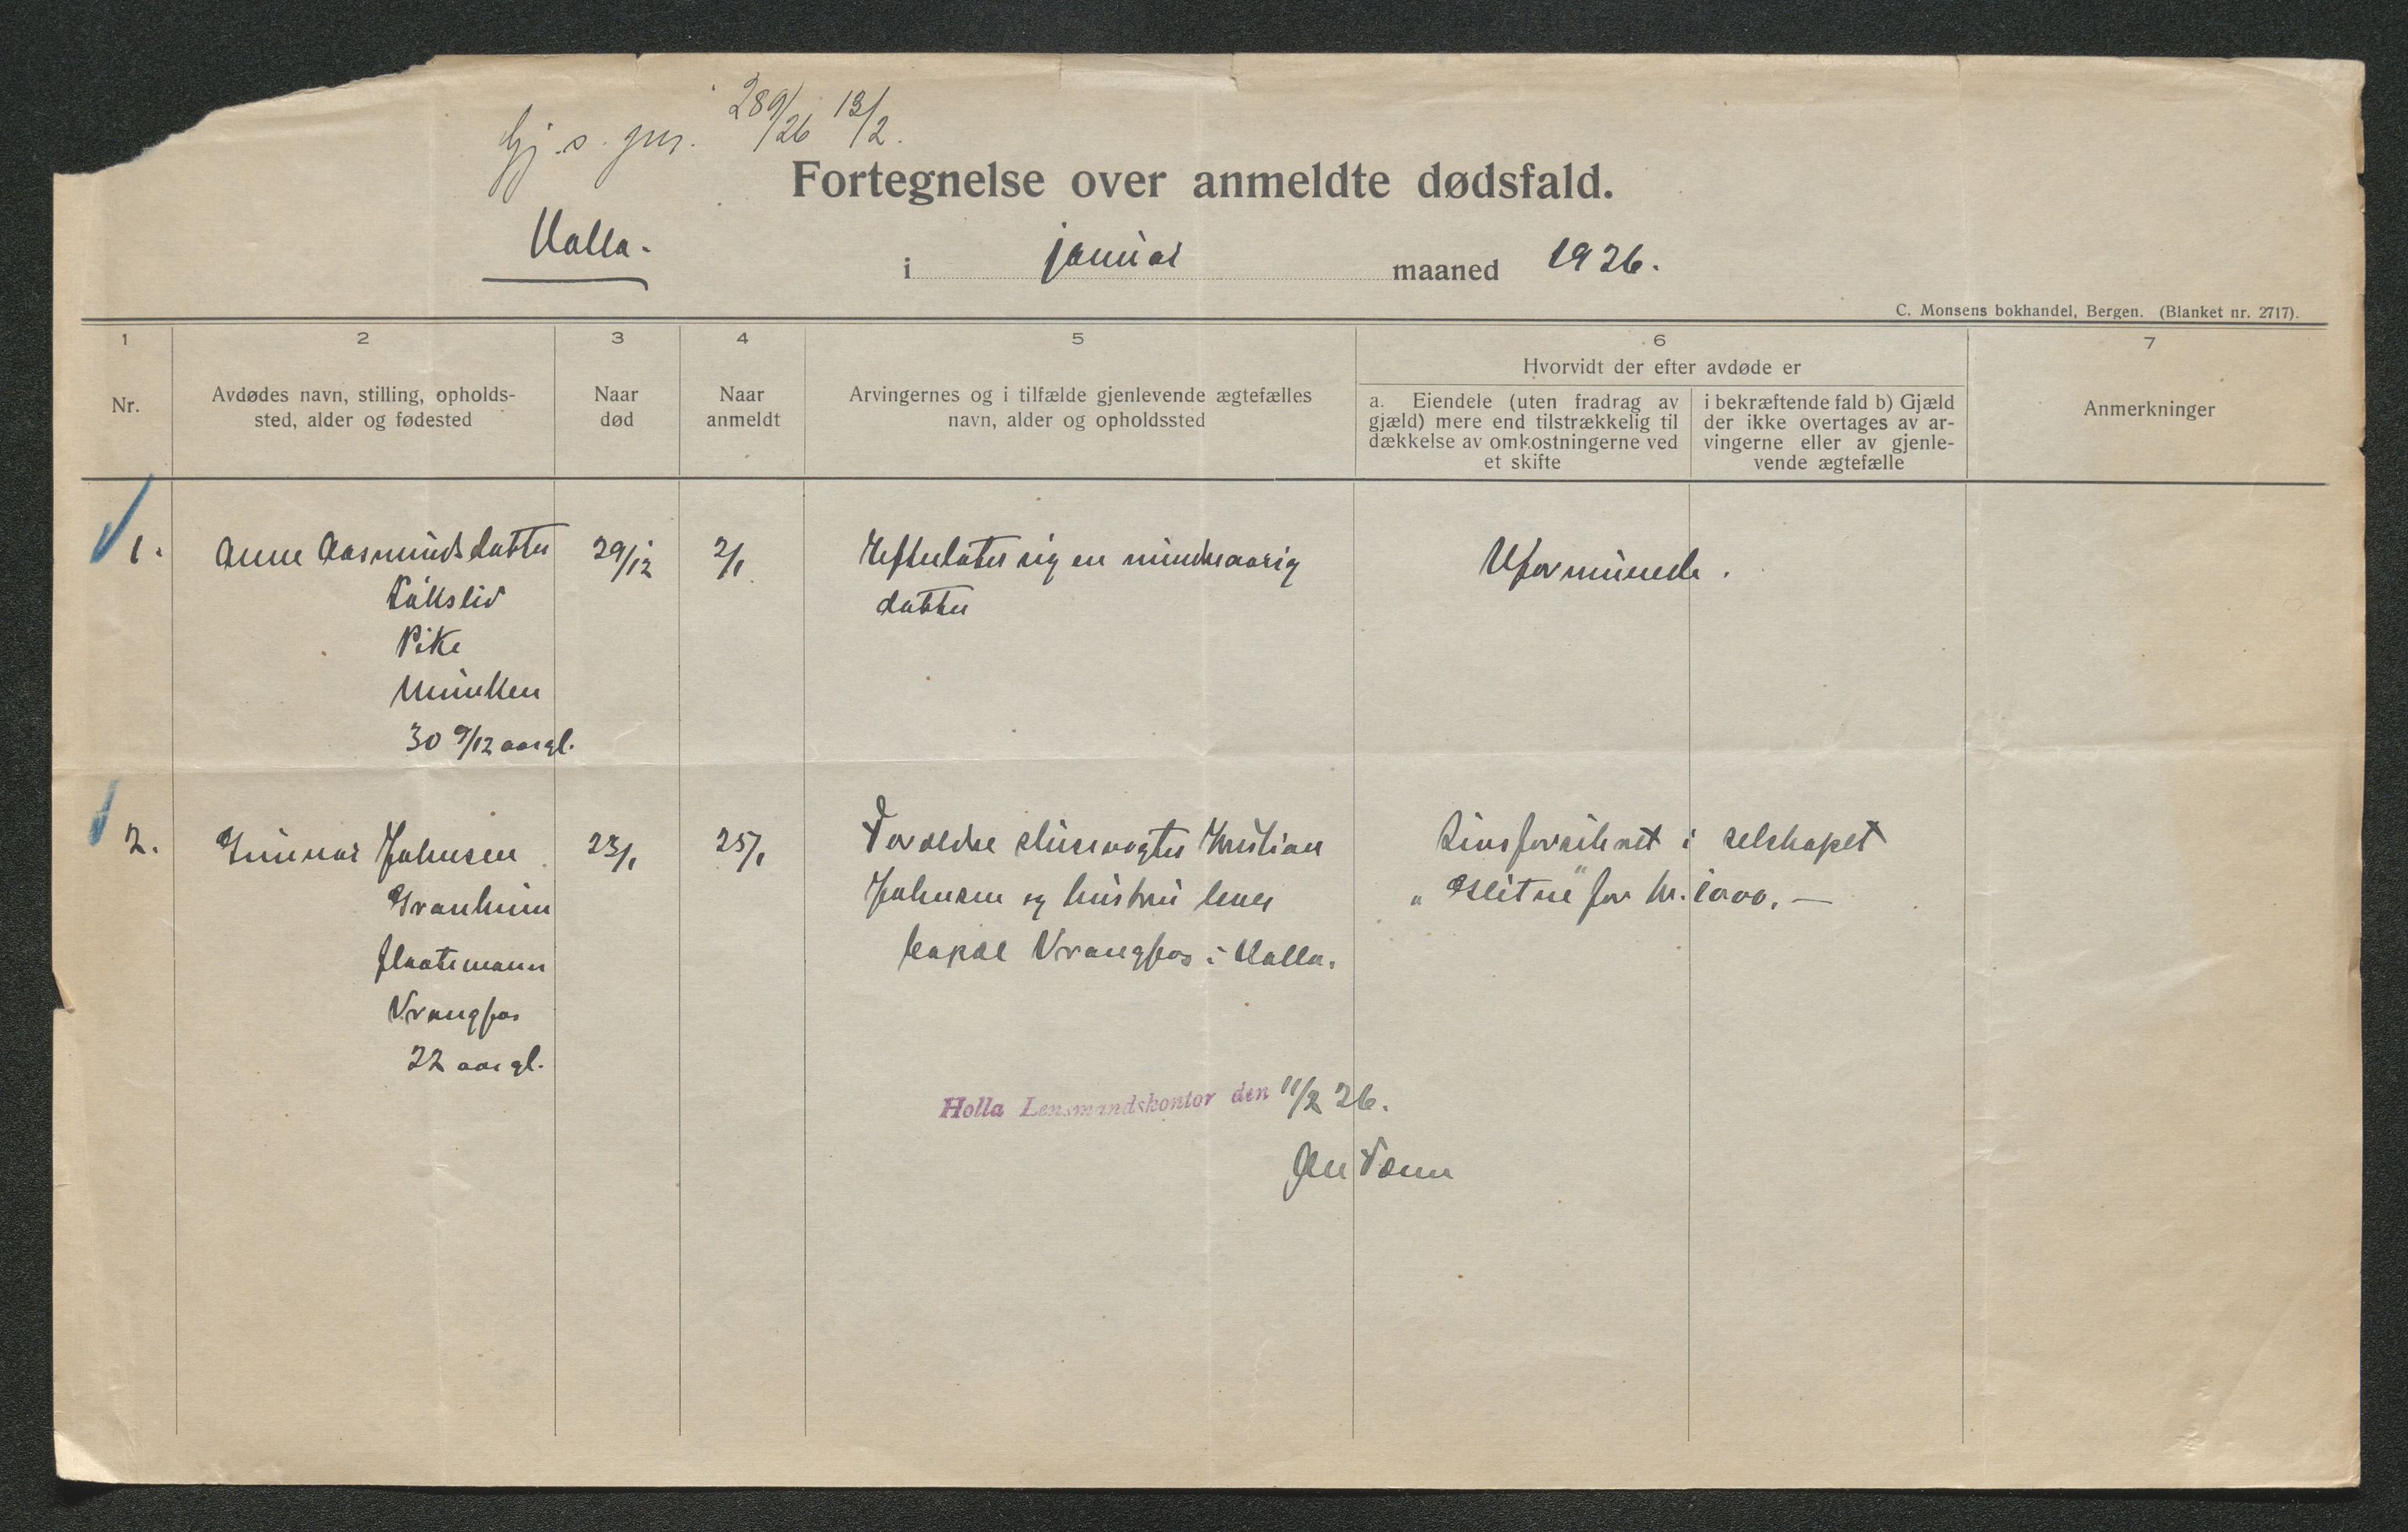 289/26 13/2.
Fortegnelse over anmeldte dødsfald.
Holla.
i januar maaned 1926.
C. Monsens bokhandel, Bergen. (Blanket nr. 2717).
1
2
3
4
5
6
7
Nr.
Avdødes navn, stilling, opholds-
sted, alder og fødested
Naar
død
Naar
anmeldt
Arvingernes og i tilfælde gjenlevende ægtefælles
navn, alder og opholdssted
Hvorvidt der efter avdøde er
a. Eiendele (uten fradrag av
gjæld) mere end tilstrækkelig til
dækkelse av omkostningerne ved
et skifte
i bekræftende fald b) Gjæld
der ikke overtages av ar-
vingerne eller av gjenle-
vende ægtefælle
Anmerkninger
1. Anne Aasmundsdatter 29/12 2/1 Efterlater sig en mindreaarig Uformuende.
datter
Pike
30 9/12 aar gl.
2. Gunnar Johnsen 23/1 25/1 Forældre slusevogter Kristian Livsforsikret i selskapet
Granheim Johnsen og hustru "Glitne" for kr. 1000.-
flaatemann Vrangfos i Holla.
Vrangfos
22 aar gl.
Holla Lensmandskontor den 11/2 26.